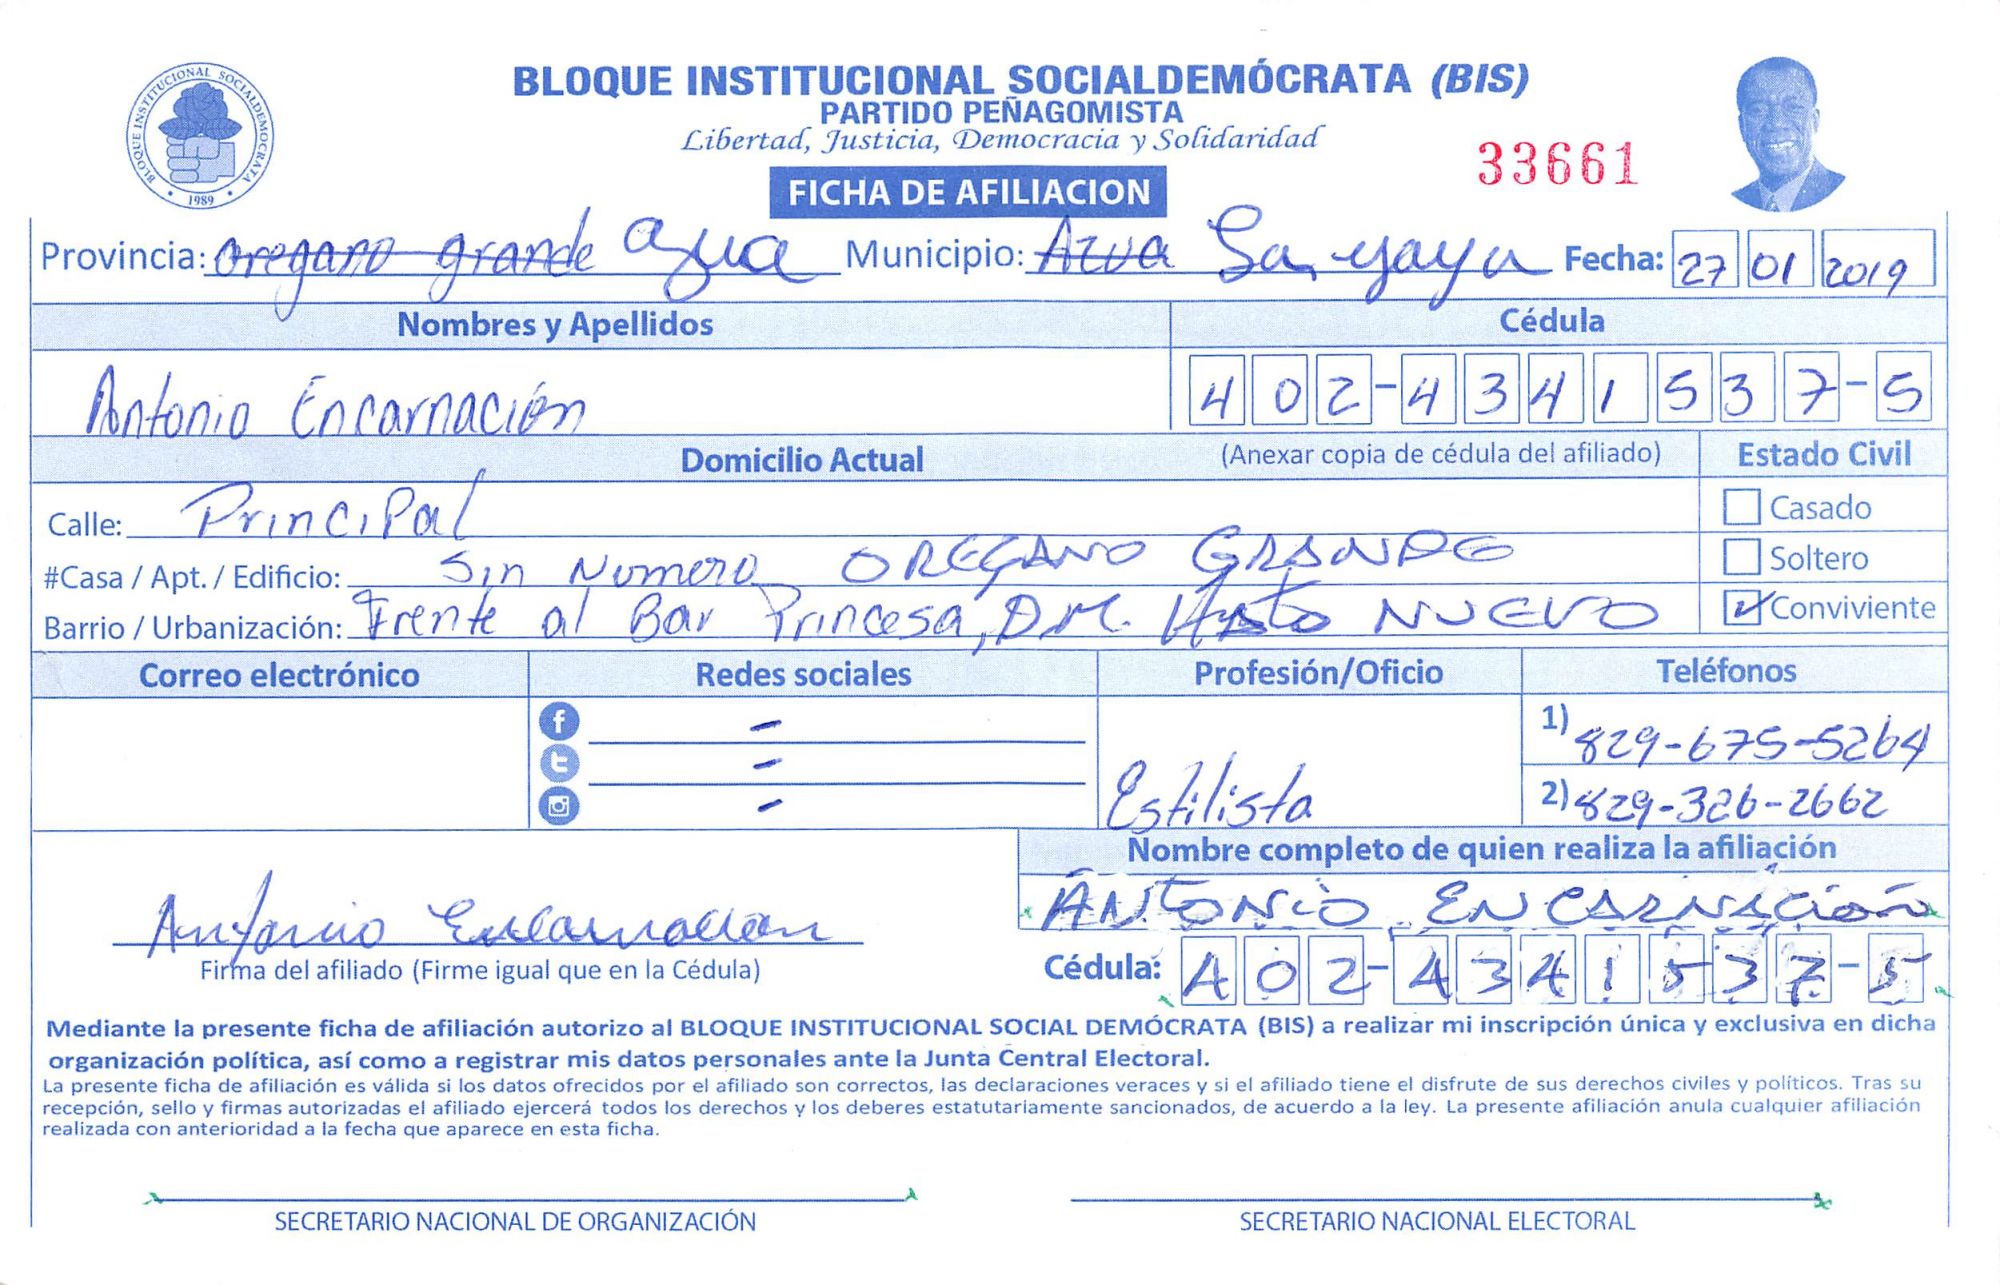 BLOQUE INSTITUCIONAL SOCIALDEMOCRATA
1989
BLOQUE INSTITUCIONAL SOCIALDEMÓCRATA (BIS)
PARTIDO PEÑAGOMISTA
Libertad, Justicia, Democracia y Solidaridad
33661
FICHA DE AFILIACION
Provincia: oregano grande Azua Municipio: Azua Sa, yaya Fecha: 27 01 2019
Nombres y Apellidos Cédula
Antonio Encarnación 402-4341537-5
Domicilio Actual (Anexar copia de cédula del afiliado) Estado Civil
Calle: Principal Casado
#Casa / Apt. / Edificio: Sin Numero OREGANO GRANDE Soltero
Barrio / Urbanización: Frente al Bar Princesa, D.M. Hato NUEVO Conviviente
Correo electrónico Redes sociales Profesión/Oficio Teléfonos
f - 1) 829-675-5264
t -
- Estilista 2) 829-326-2662
Nombre completo de quien realiza la afiliación
Antonio Encarnacion ANTONIO ENCARNACIÓN
Firma del afiliado (Firme igual que en la Cédula) Cédula: 402-4341537-5
Mediante la presente ficha de afiliación autorizo al BLOQUE INSTITUCIONAL SOCIAL DEMÓCRATA (BIS) a realizar mi inscripción única y exclusiva en dicha
organización política, así como a registrar mis datos personales ante la Junta Central Electoral.
La presente ficha de afiliación es válida si los datos ofrecidos por el afiliado son correctos, las declaraciones veraces y si el afiliado tiene el disfrute de sus derechos civiles y políticos. Tras su
recepción, sello y firmas autorizadas el afiliado ejercerá todos los derechos y los deberes estatutariamente sancionados, de acuerdo a la ley. La presente afiliación anula cualquier afiliación
realizada con anterioridad a la fecha que aparece en esta ficha.
SECRETARIO NACIONAL DE ORGANIZACIÓN SECRETARIO NACIONAL ELECTORAL